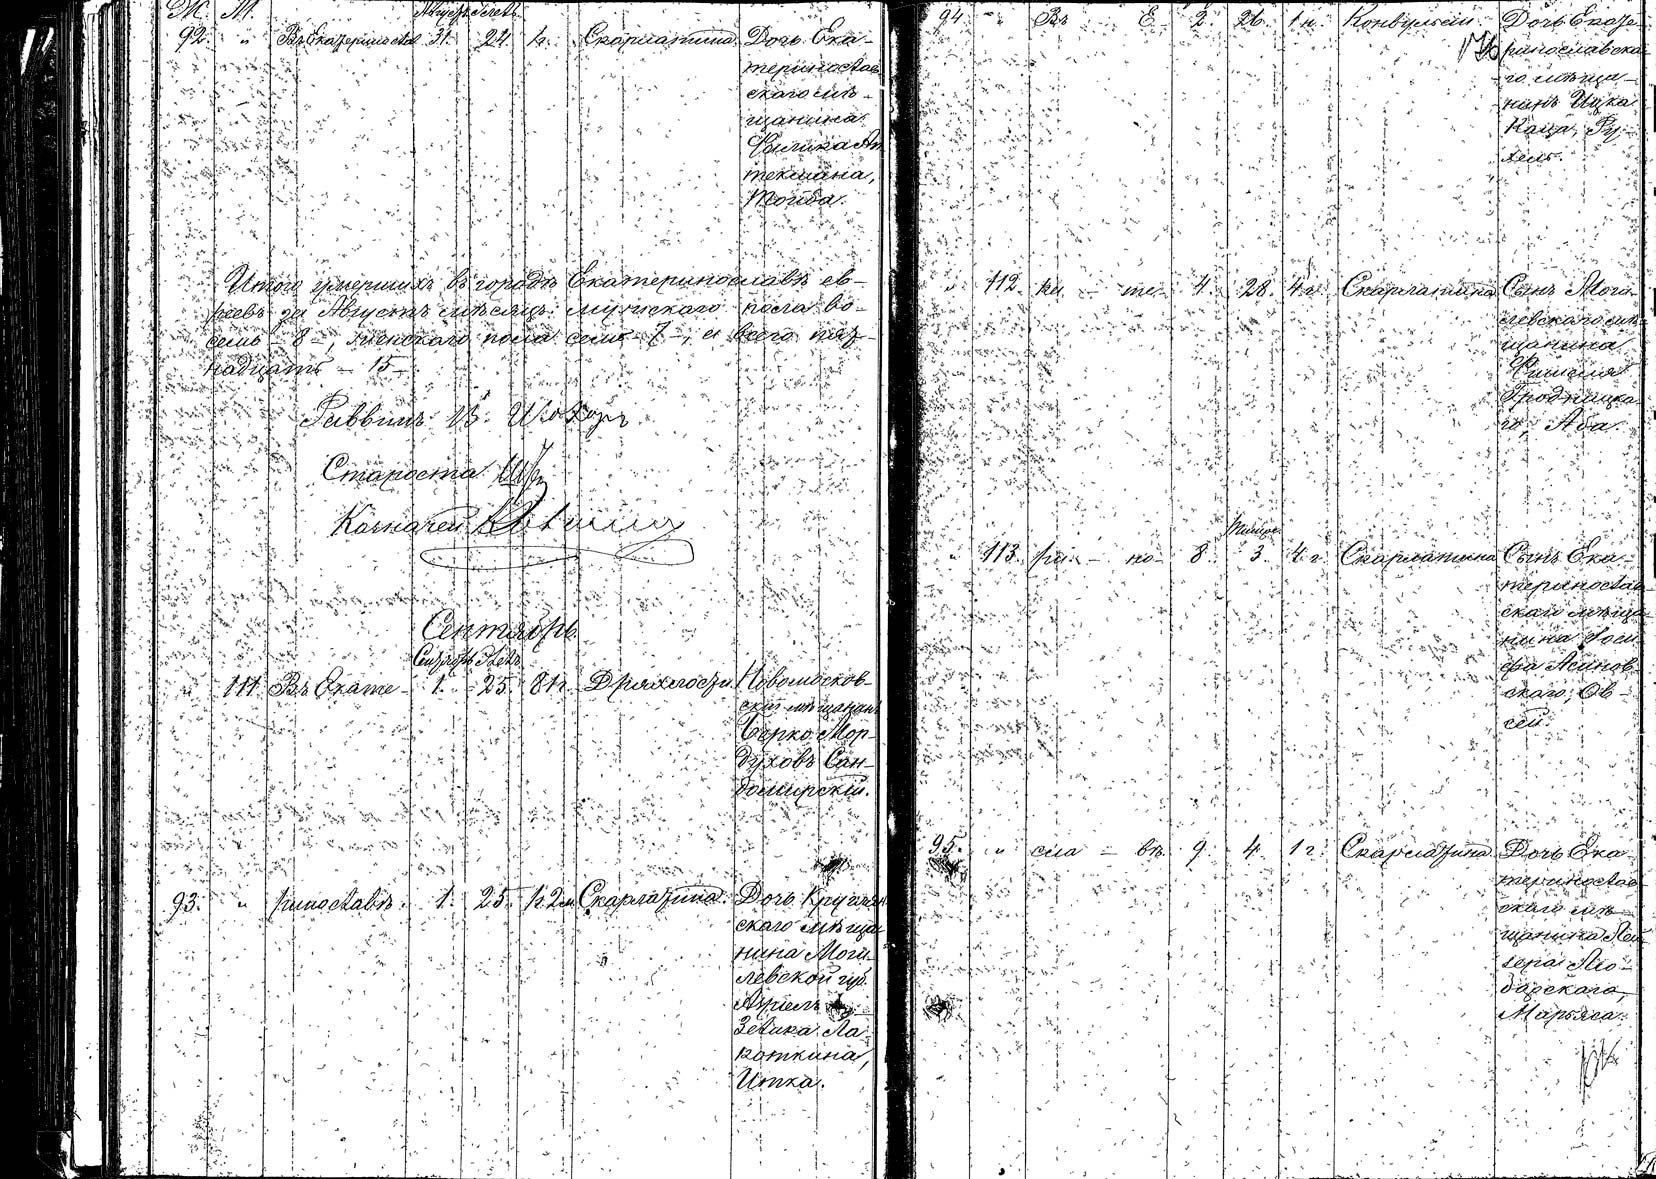 Ж. М. Августъ
92. " Въ Екатеринославѣ 31. 24. Скарлатина. Дочь Ека-
териослав
скаго мѣ-
щанина
текмана,
Тойба.
Итого умершихъ въ городѣ Екатеринославѣ ев-
реевъ за Августъ мѣсяцъ: мужского пола во-
семь - 8 -, женского пола семь - 7 -, а всего пят-
надцать - 15 -
Раввинъ В. Шохоръ
Староста
Казначей
Сентябрь.
Сентябрь
" 111. Въ Екате- 1. 25. 81 г. Дряхлости Новомосков-
скій мѣщанинъ
Берко Мор-
духовъ Сан-
домирскій.
93. " ринославѣ. 1. 25. Скарлатина. Дочь
скаго мѣща
нина Моги-
левской губ.
Зелика Ла-
коткина,
Итка.
94. " Въ Е 2. 26. 1 г. Конвульсіи Дочь Екате
ринославска
го мѣща-
нина Ицка
Каца, Ру-
хель.
" 112. ка - те- 4. 28. 4 г. Скарлатина Сынъ Моги-
левскаго мѣ-
щанина
Фишеля
Гродницка-
го, Аба.
" 113. ри. - но- 8. 3. 4 г. Скарлатина Сынъ Ека-
теринослав-
скаго мѣща-
нина Іоси-
фа Асинов-
скаго, Ов-
сей.
95. " сла - вѣ. 9. 4. 1 г. Скарлатина Дочь Ека-
теринослав-
скаго мѣ-
щанина Лей-
зера Лю-
барскаго,
Марьяса.